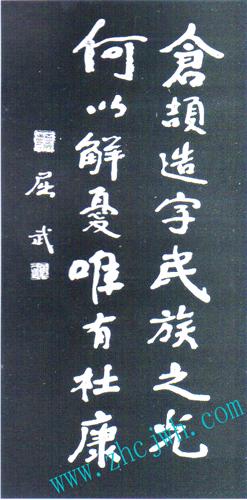 倉頡造字民族之光
何以解憂唯有杜康
屈武
www.zhcjwh.com